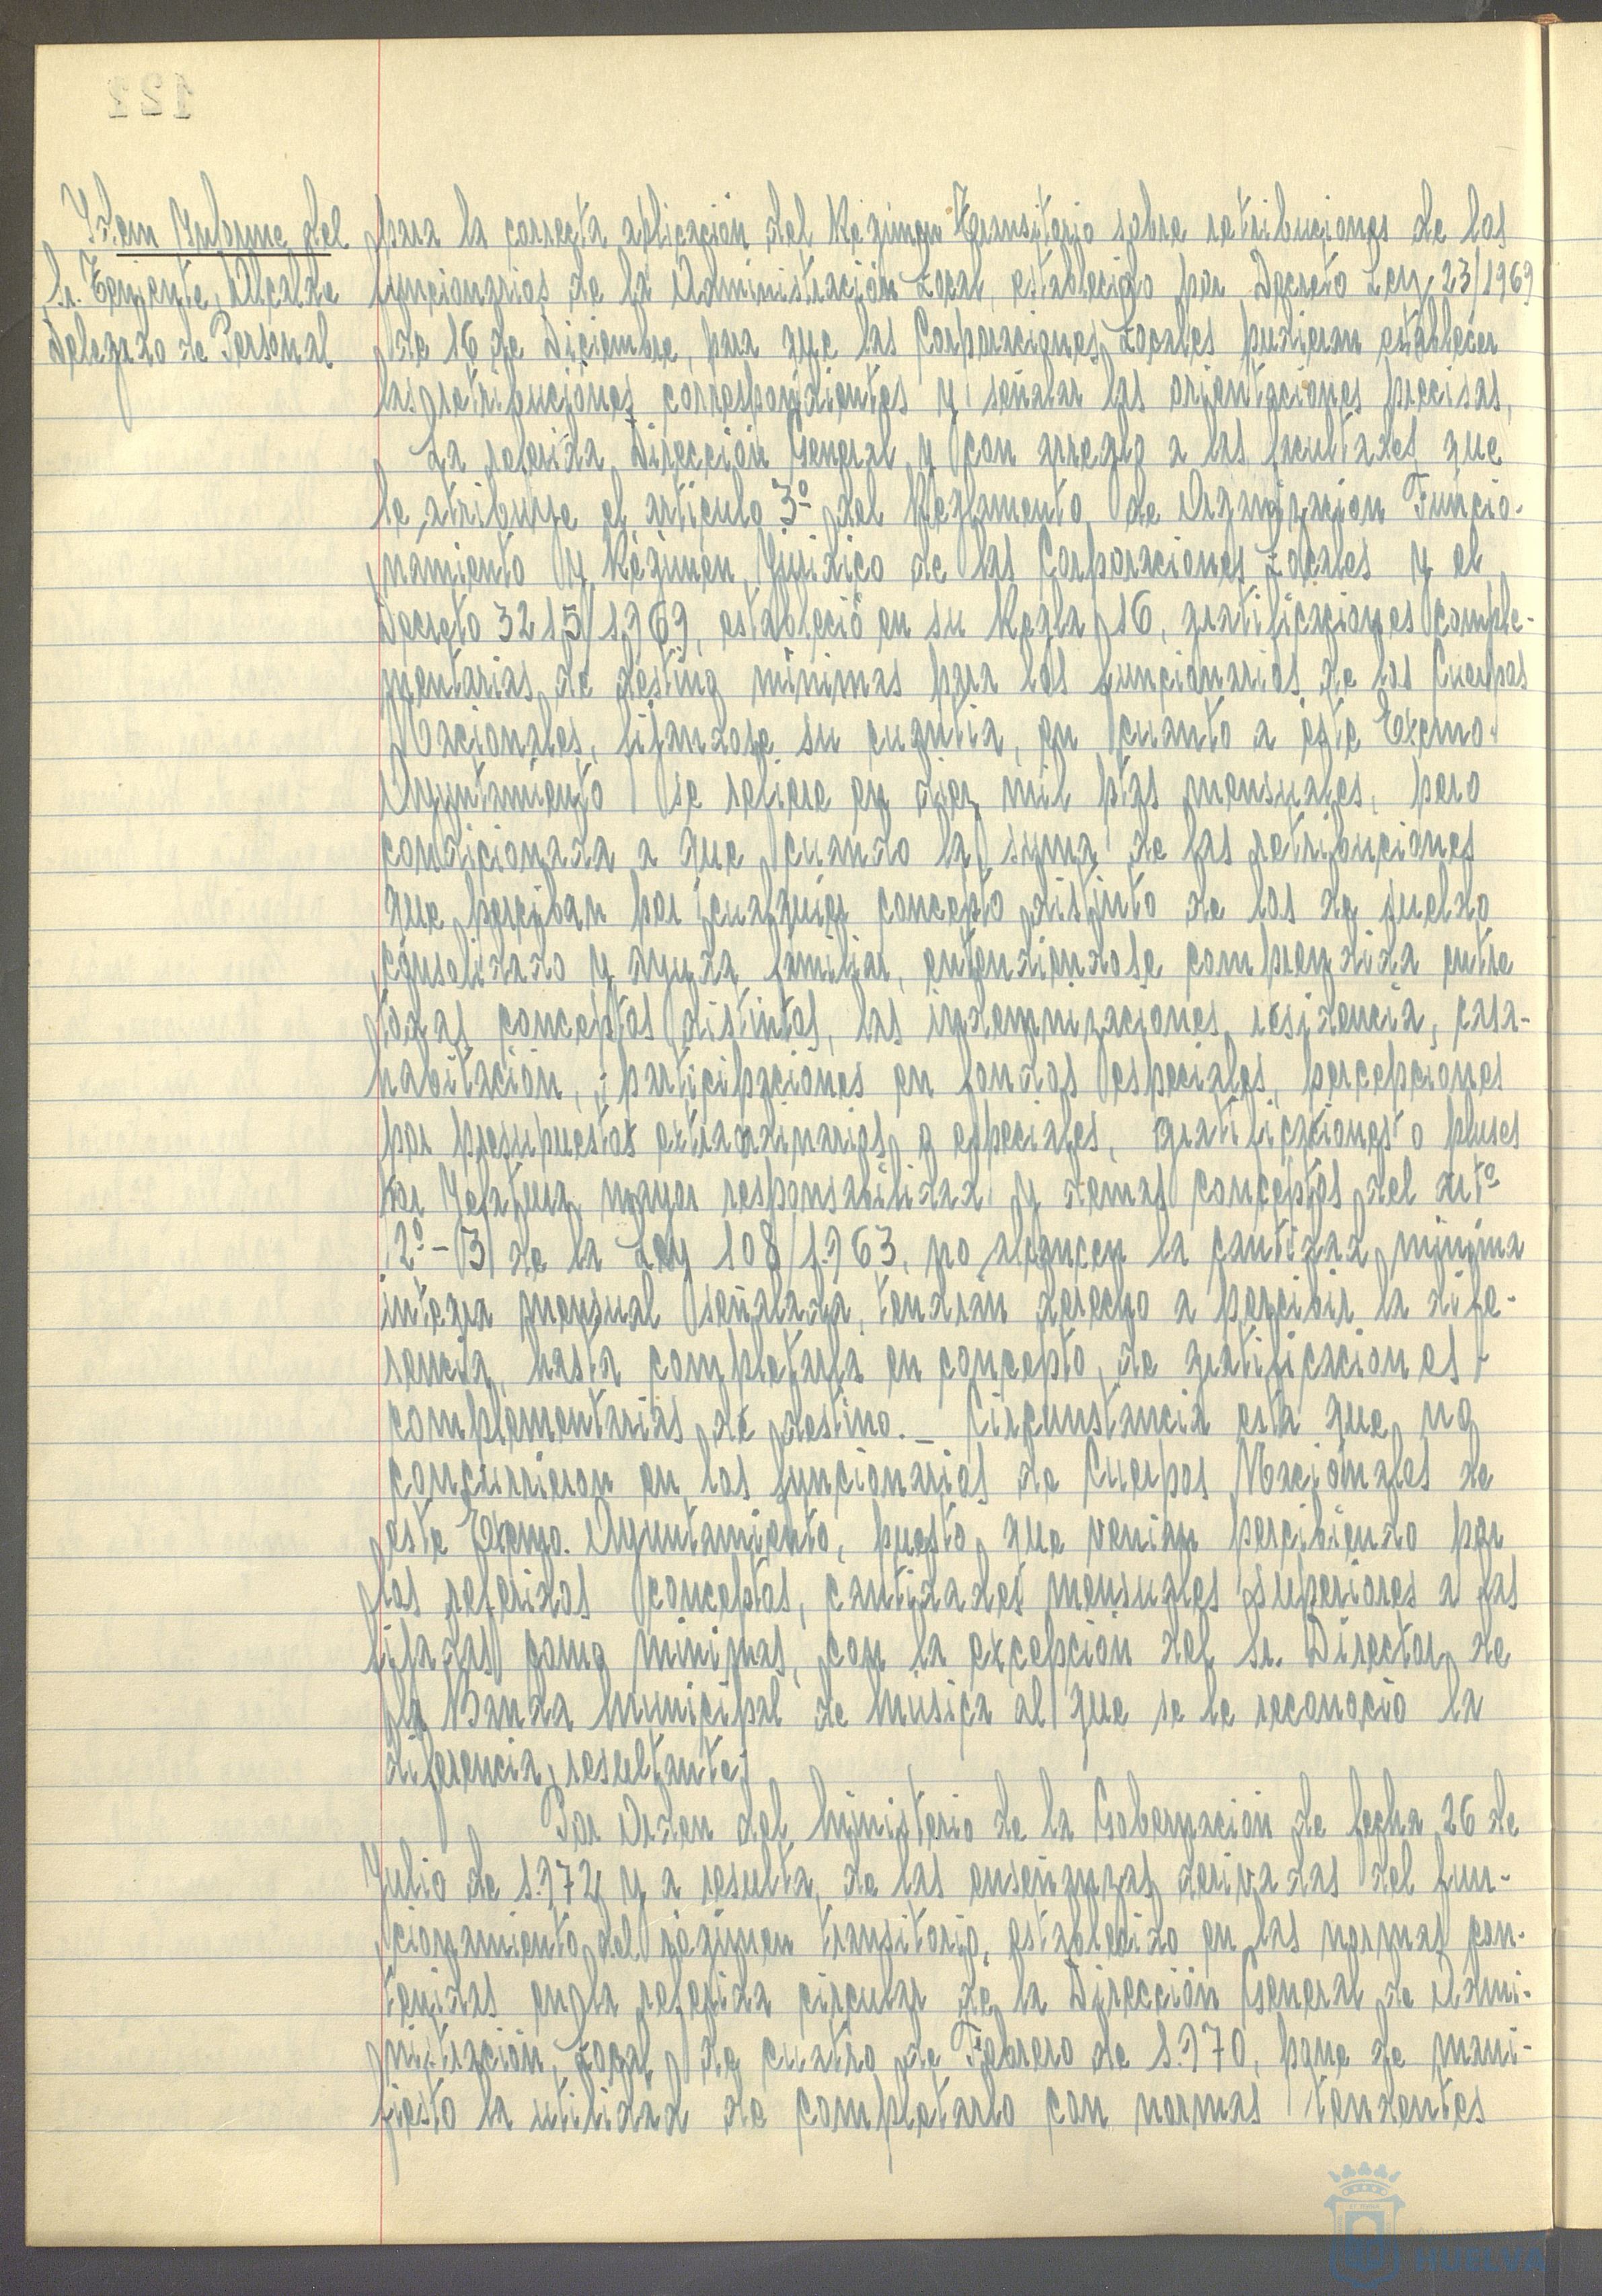 122
Idem Informe del
Sr. Teniente Alcalde
Delegado de Personal
para la correcta aplicación del Régimen transitorio sobre retribuciones de los
funcionarios de la Administración Local, establecido por Decreto Ley, 23/1969
de 16 de Diciembre, para que las Corporaciones Locales pudieran establecer
las retribuciones correspondientes y señalar las orientaciones precisas,
La referida Dirección General y con arreglo a las facultades que
le atribuye el artículo 3º del Reglamento de Organización Funcio-
namiento y Régimen Jurídico de las Corporaciones Locales y el
Decreto 3215/1.969, estableció en su Regla 16, gratificaciones comple-
mentarias de destino mínimas para los funcionarios de los Cuerpos
Nacionales, fijandose su cuantía, en cuanto a este Excmo.
Ayuntamiento se refiere en diez mil ptas mensuales, pero
condicionada a que cuando la suma de las retribuciones
que perciban por cualquier concepto distinto de los de sueldo
consolidado y ayuda familiar, entendiendose comprendida entre
todas conceptos distintos, las indemnizaciones, residencia, casa-
habitación, participaciones en fondos especiales, percepciones
por presupuestos extraordinarios o especiales, gratificaciones o pluses
por Jefatura mayor responsabilidad y demas conceptos del artº
2º-3 de la Ley 108/1.963, no alcancen la cantidad mínima
integra mensual señalada, tendrán derecho a percibir la dife-
rencia, hasta completarla en concepto de gratificaciones
complementarias de destino.- Circunstancia esta que no
concurrieron en los funcionarios de Cuerpos Nacionales de
este Excmo. Ayuntamiento, puesto que venian percibiendo por
los referidos conceptos, cantidades mensuales superiores a las
fijadas como mínimas, con la excepción del Sr. Director de
la Banda Municipal de Música al que se le reconoció la
diferencia resultante.
Por Orden del Ministerio de la Gobernación de fecha 26 de
Julio de 1.972 y a resulta de las enseñanzas derivadas del fun-
cionamiento del régimen transitorio, establecido en las normas con-
tenidas en la referida circular de la Dirección General de Admi-
nistración Local de cuatro de Febrero de 1.970, pone de mani-
fiesto la utilidad de completarlo con normas tendentes
HUELVA